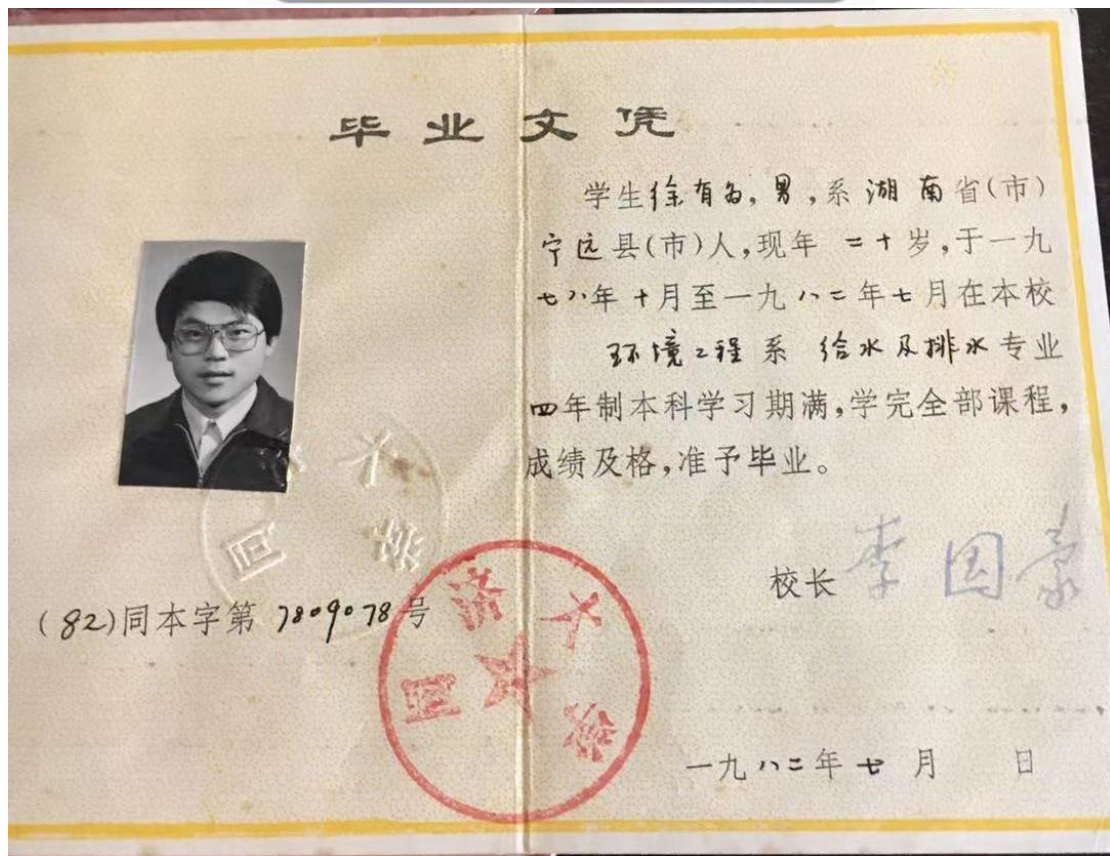 毕业文凭
学生徐有为,男,系湖南省(市)
宁远县(市)人,现年二十岁,于一九
七八年十月至一九八二年七月在本校
环境工程系 给水及排水专业
四年制本科学习期满,学完全部课程,
成绩及格,准予毕业。
同济大学
校长 李国豪
(82)同本字第7809078号
同济大学
一九八二年七月 日